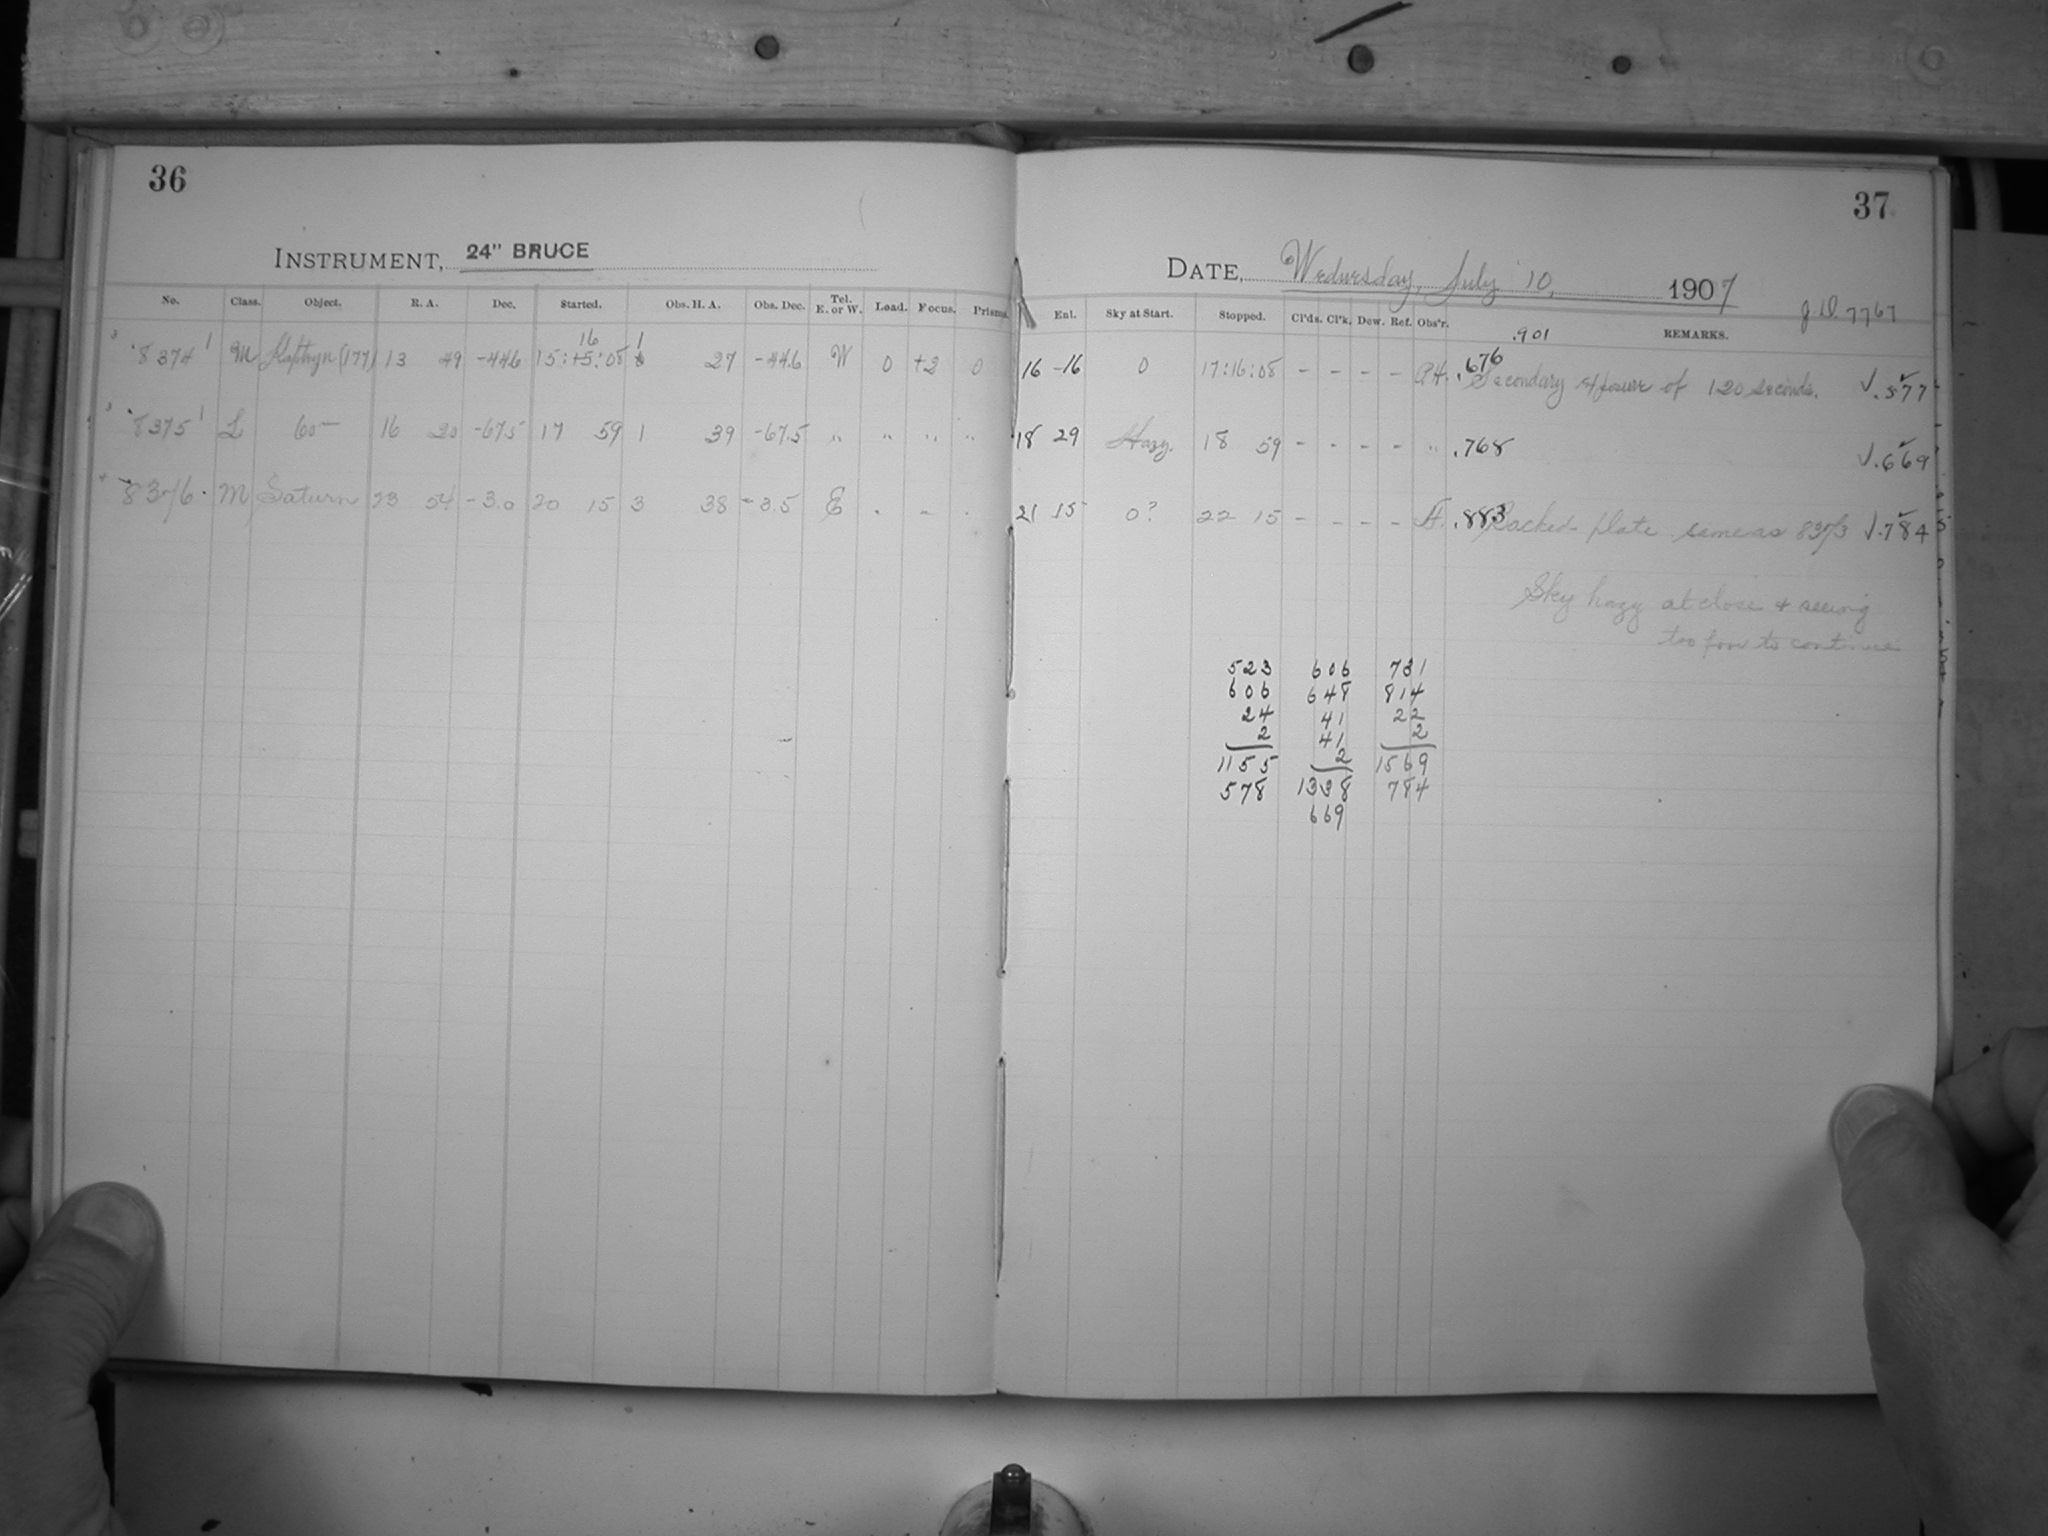 36
INSTRUMENT, 24" BRUCE
No. Class. Object. R. A. Dec. Started. Obs. H. A. Obs. Dec. Tel. E. or W. Load. Focus. Prisms.
16 1
8374 M (177) 13 49 -44.6 15:15:08 6 27 -44.6 W 0 +2 0
8375 L 60- 16 20 -67.5 17 59 1 39 -67.5 " " " "
8376 M Saturn 23 54 -3.0 20 15 3 38 -3.5 E " " "
37
DATE, Wednesday, July 10, 1907
J.D. 7767
Ent. Sky at Start. Stopped. Cl'ds. Cl'k. Dew. Ref. Obs'r. .901 REMARKS.
16 -16 0 17:16:08 - - - - .676 Secondary exposure of 120 seconds. √.577
18 29 Hazy. 18 59 - - - - " .768 √.669
21 15 0? 22 15 - - - - .883 Backed plate same as 8373 √.784
Sky hazy at close + seeing
too poor to continue
523 606 731
606 648 814
24 41 22
2 41 2
1155 2 1569
578 1338 784
669